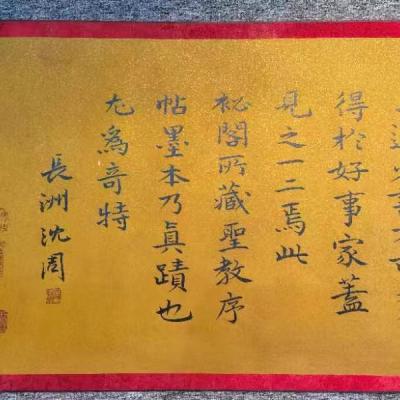 得於好事家蓋
見之一二焉此
祕閣所藏聖教序
帖墨本乃真蹟也
尤為奇特
長洲沈周